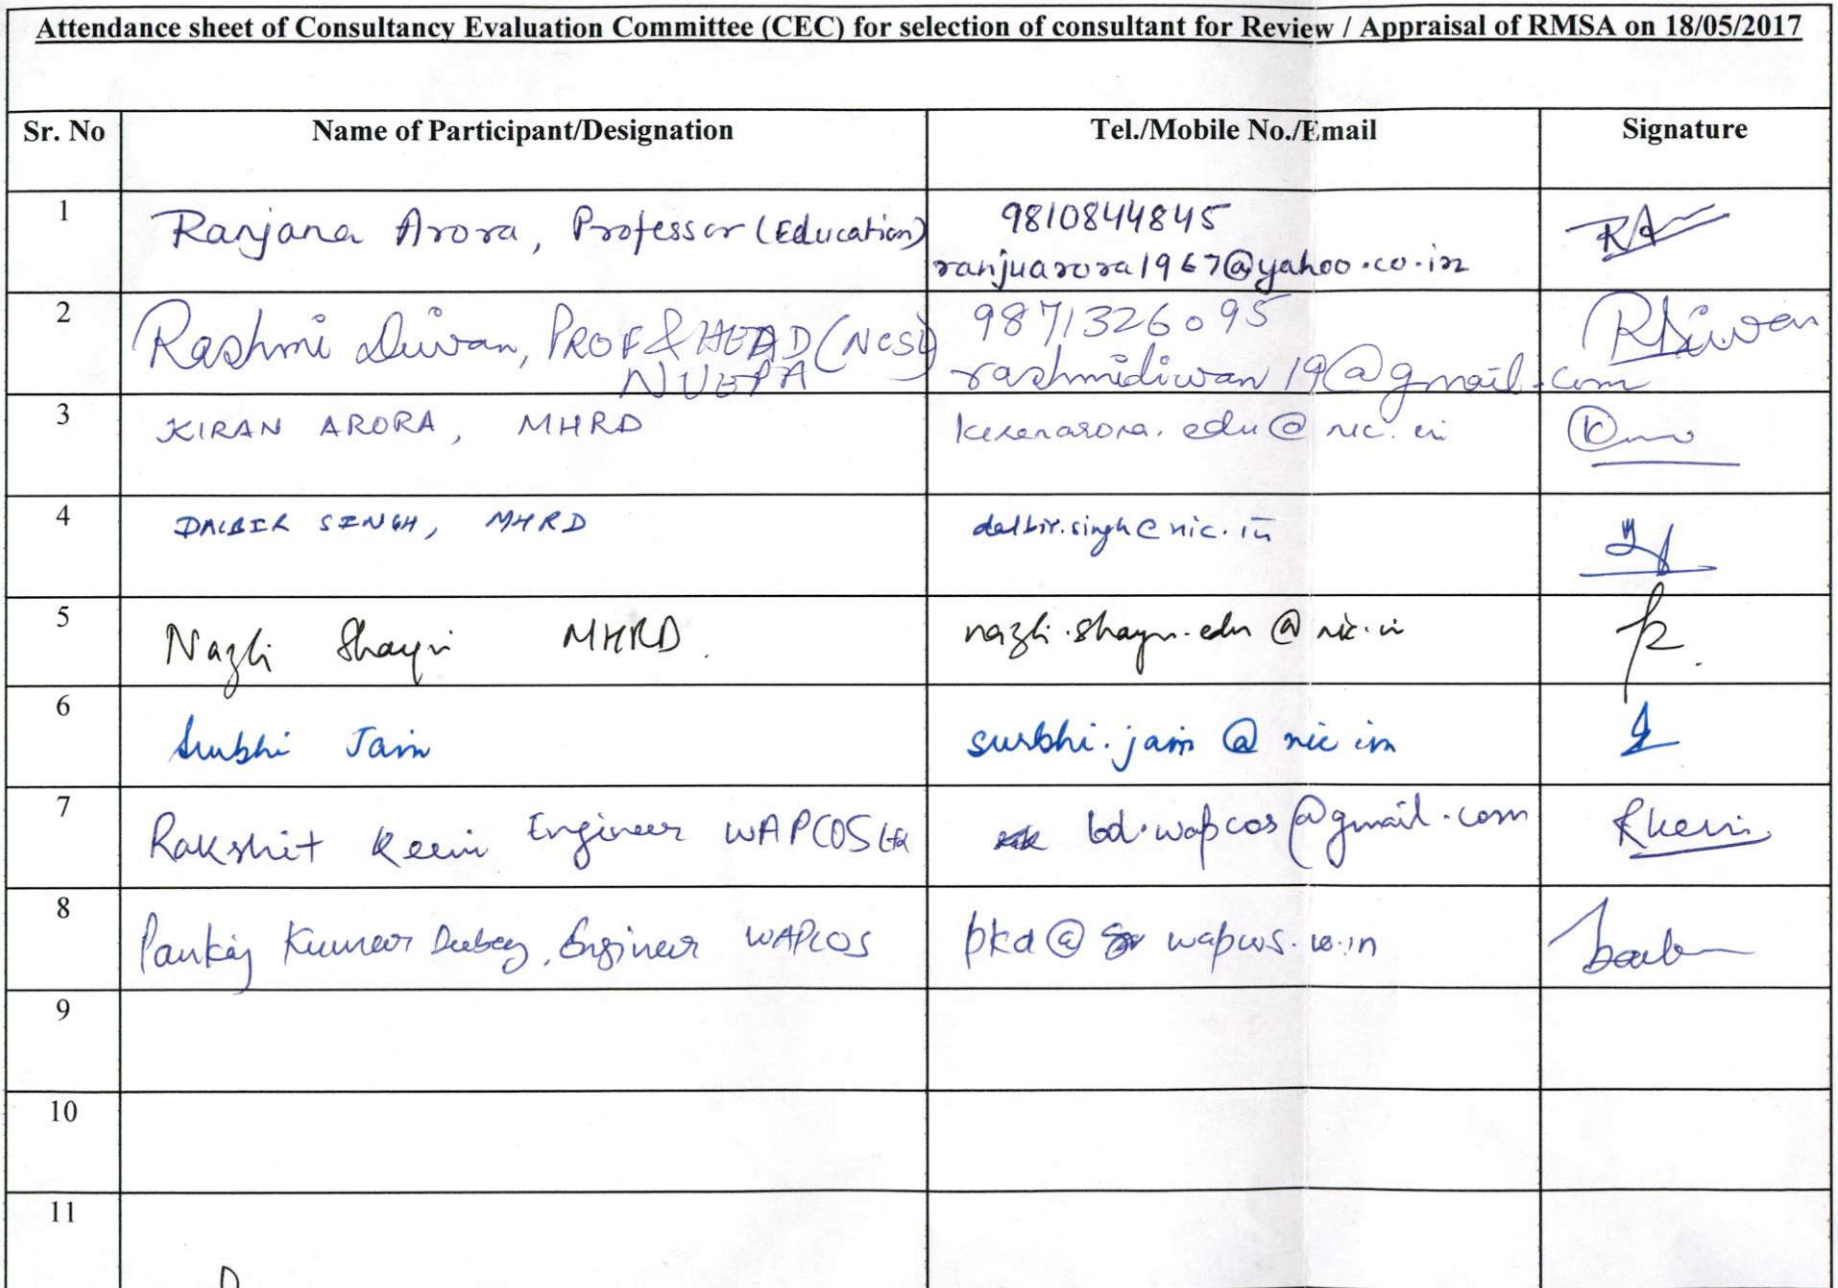 Attendance sheet of Consultancy Evaluation Committee (CEC) for selection of consultant for Review / Appraisal of RMSA on 18/05/2017
Sr. No Name of Participant/Designation Tel./Mobile No./Email Signature
1 Ranjana Arora, Professor (Education) 9810844845 RA
ranjuarora1967@yahoo.co.in
2 Rashmi Diwan, PROF & HEAD (NCSL) 9871326095 RDiwan
NUEPA rashmidiwan19@gmail.com
3 KIRAN ARORA, MHRD kiranarora.edu@nic.in
4 DALBIR SINGH, MHRD dalbir.singh@nic.in
5 Nazli Shayin MHRD. nazli.shayin.edu@nic.in
6 Surbhi Jain surbhi.jain@nic.in
7 Rakshit Engineer WAPCOS Ltd bd.wapcos@gmail.com
8 Pankaj Kumar Dubey, Engineer WAPCOS pkd@wapcos.co.in
9
10
11